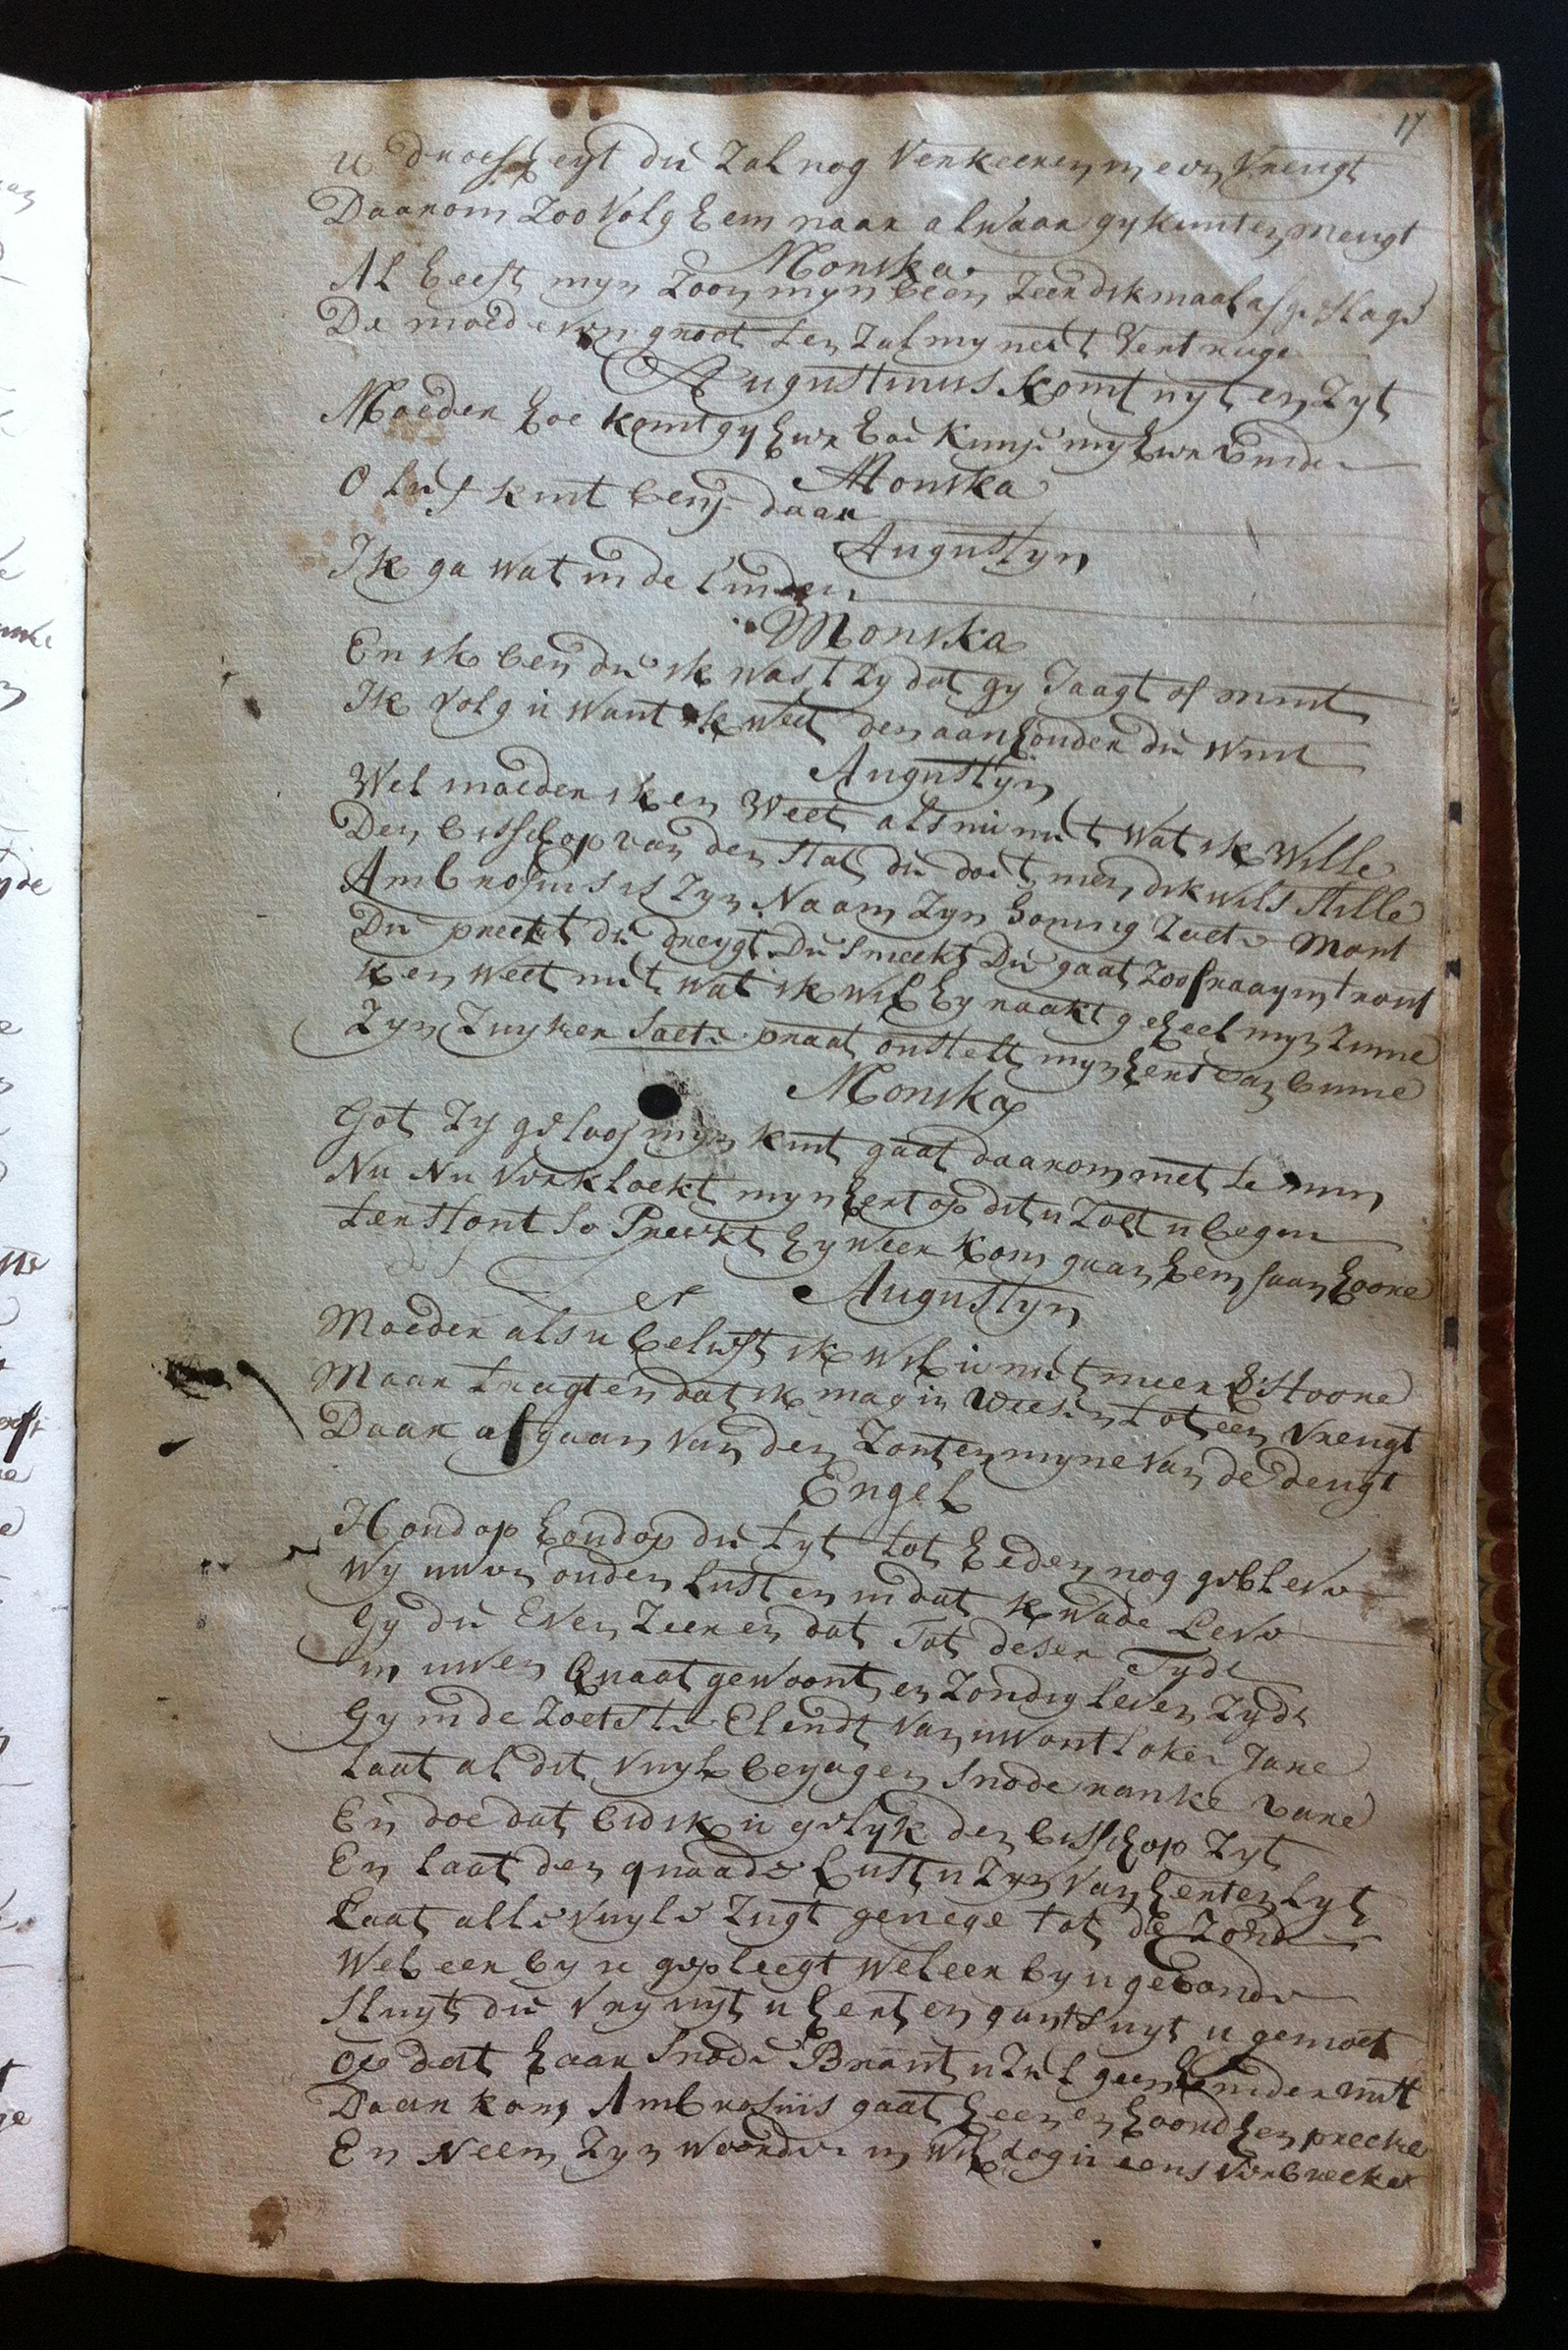 17
u droefheyt die Zal nog Verkeeren in een Vreugt
Daarom Zoo Volg hem naar alwaar gy kunt en meugt
Monika
Al heest myn Zoon myn been Zeer dikmaal afgeslage
De moed even groot Len Zal my niet Vertrage
Augustinus komt uyt en Zyt
Moeder hoe komt gy hier hoe kunje my hier vinde
Monika
O Lief kint benj daar
Augustyn
Ik ga wat in de linden
Monika
En ik ben die ik was t Zy dat gy Jaagt of mint
Ik Volg u Want ik Weet den aanhouder die Wint
Augustyn
Wel moeder ik en Weet als nu niet Wat ik Wille
Den bisschop van den Stat die doet men dikwils Stille
Ambrosius is Zyn Naam Zyn honing Zoete Mont
Die preekt die dreygt Die Smeekt Die gaat Zoo fraay in t ront
k en weet niet wat ik wil hy raakt geheel myn Zinne
Zyn Zuyker Soete praat onstelt myn hert van binne
Monika
Got Zy geloof myn kint gaat daarom met te min
Nu Nu Verkloekt myn hert op dit u Zoet u begin
terstont So Preekt hy Weer kom gaan hem saan hoore
Augustyn
Moeder als u belieft ik wil u niet meer Stoore
Maar tragten dat ik mag u Weesen tot een Vreugt
Daar af gaan Van den Zont en myne Van de deugt
Engel
Houd op houd op die tyt tot heden nog gebleve
Wy uwen ouden lust en in dat kwade Leve
Gy die Even Zeer en dat Tot deser Tydt
in uwen quaat gewoont en Zondig leven Zydt
Gy in de Zoetste Elendt Van u Wont loker Jare
Laat al dit Vuyl bejagen Snode ranke vare
En doe dat bid ik u gelyk den bisschop Zyt
En laat den quade Lust u Zyn Van herten Lyt
Laat alle Vuyle Zugt genege tot de Zonde
Wel eer by u gepleegt Wel eer by u gebonde
Sluyt die Vry uyt u hert en gants uyt u gemoet
op dat haar Snode Brant u Ziel geen hinder
Daar kom Ambrosius gaat heen en hoord hem preeke
En Neem Zyn Woorden in Wil tog u eens Verbreeke